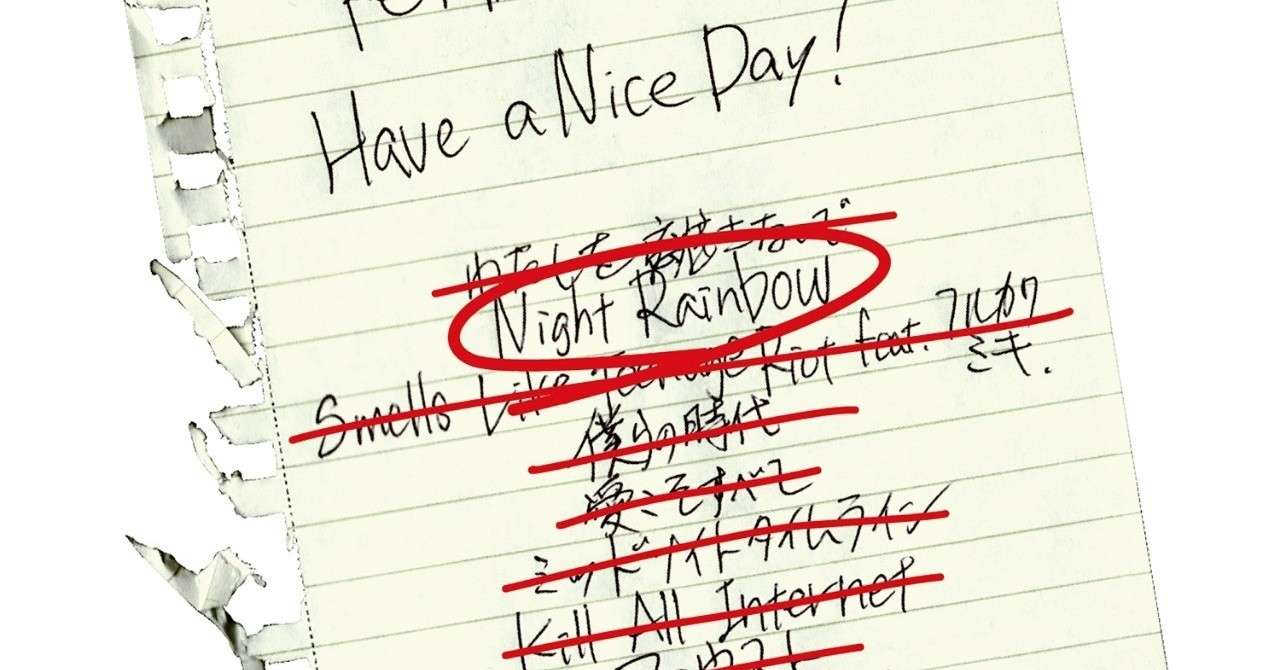 Have a Nice Day!
わたしを離さないで
Night Rainbow
Smells Like Teenage Riot feat. フルカワ
ミキ.
僕らの時代
愛こそすべて
ミッドナイトタイムライン
Kill All Internet